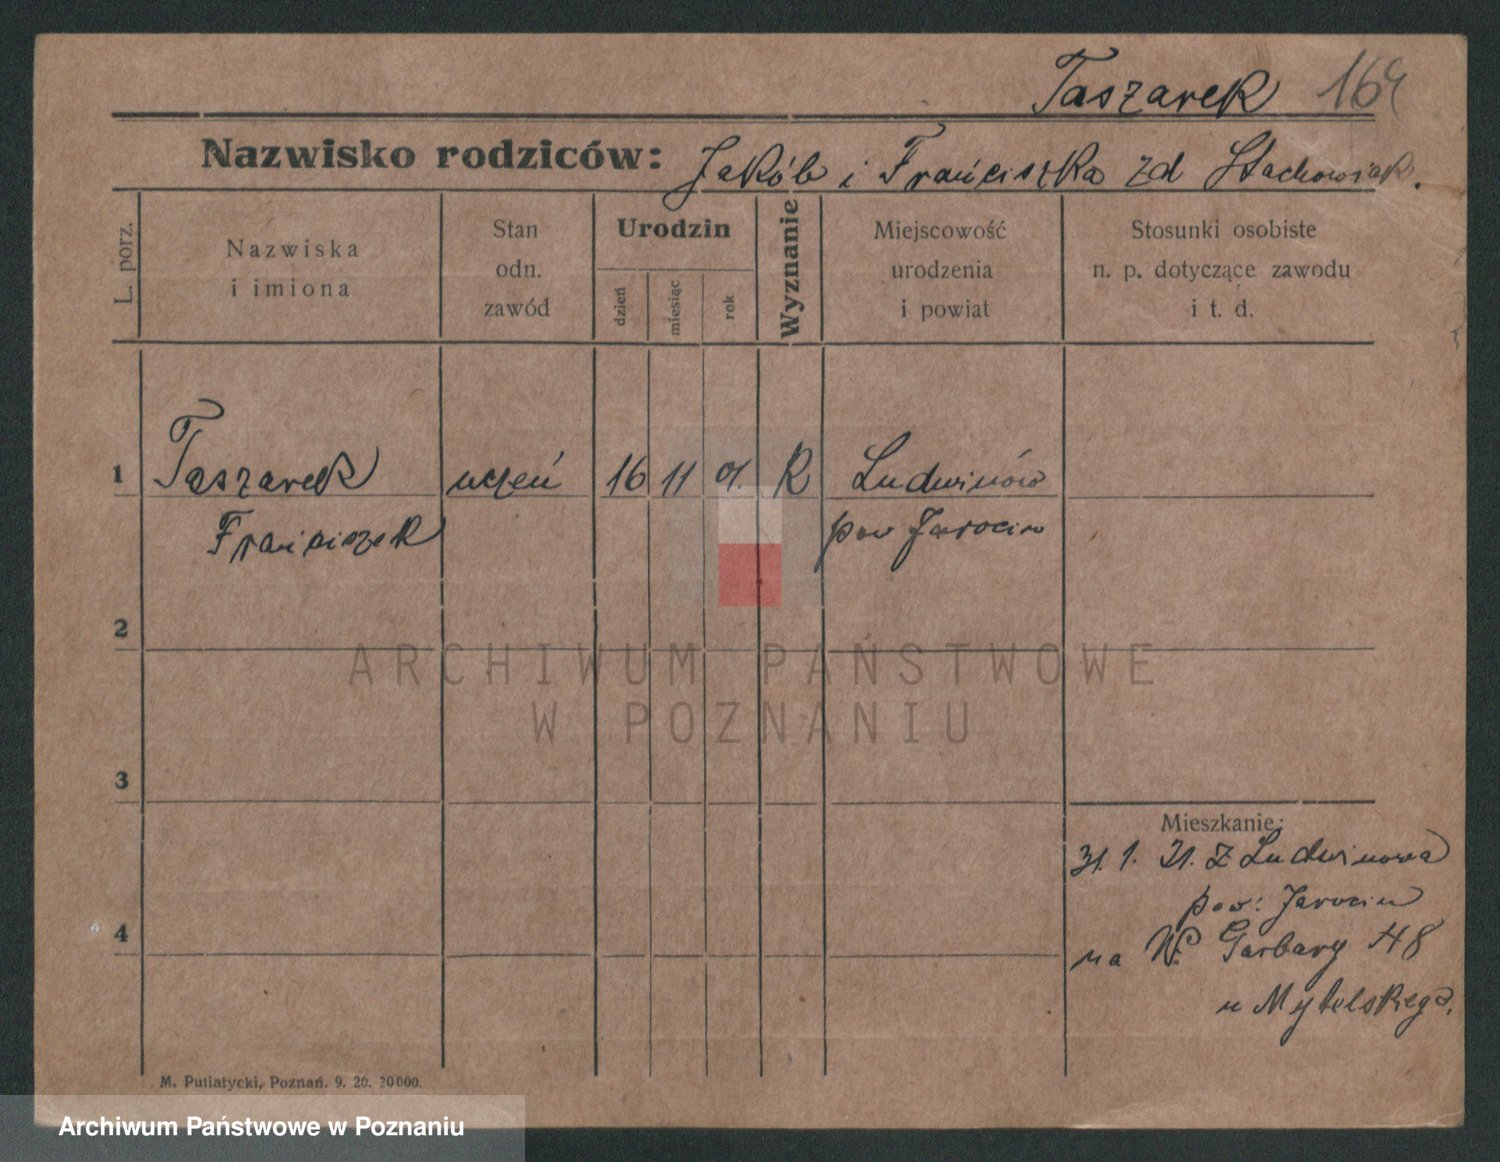 Taszarek 164
Nazwisko rodziców: Jakób i Franciszka zd Stachowiak.
L. porz.
Nazwiska
i imiona
Stan
odn.
zawód
Urodzin
dzień
miesiąc
rok
Wyznanie
Miejscowość
urodzenia
i powiat
Stosunki osobiste
n. p. dotyczące zawodu
i t. d.
1 Taszarek uczeń 16 11 01. R Ludwinów
Franciszek pow Jarocin
2
ARCHIWUM PAŃSTWOWE
W POZNANIU
3
Mieszkanie:
31. 1. 21. z Ludwinowa
pow: Jarocin
4
na W. Garbary 48
u Mytelskiego.
M. Putiatycki, Poznań. 9. 20. 20000.
Archiwum Państwowe w Poznaniu